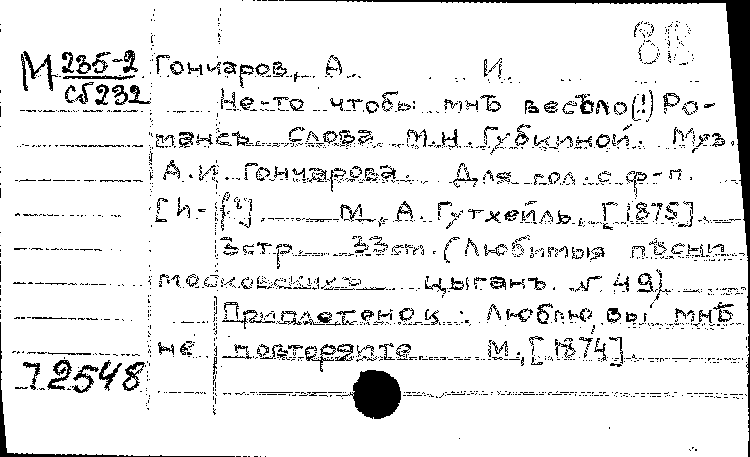 8В
М 235-2
Сб232
Гончаров, А. И.
Не-то чтобы мнѣ весѣло(!) Ро-
мансъ. Слова М.Н. Губкиной. Муз.
А.И. Гончарова. Для гол. с ф-п.
[h-f²]. М., А. Гутхейль, [1875].
3стр. 33см. (Любимыя пѣсни
московскихъ цыганъ. № 49)
Приплетенок: Люблю, вы мнѣ
не повторяйте М., [1874].
72548